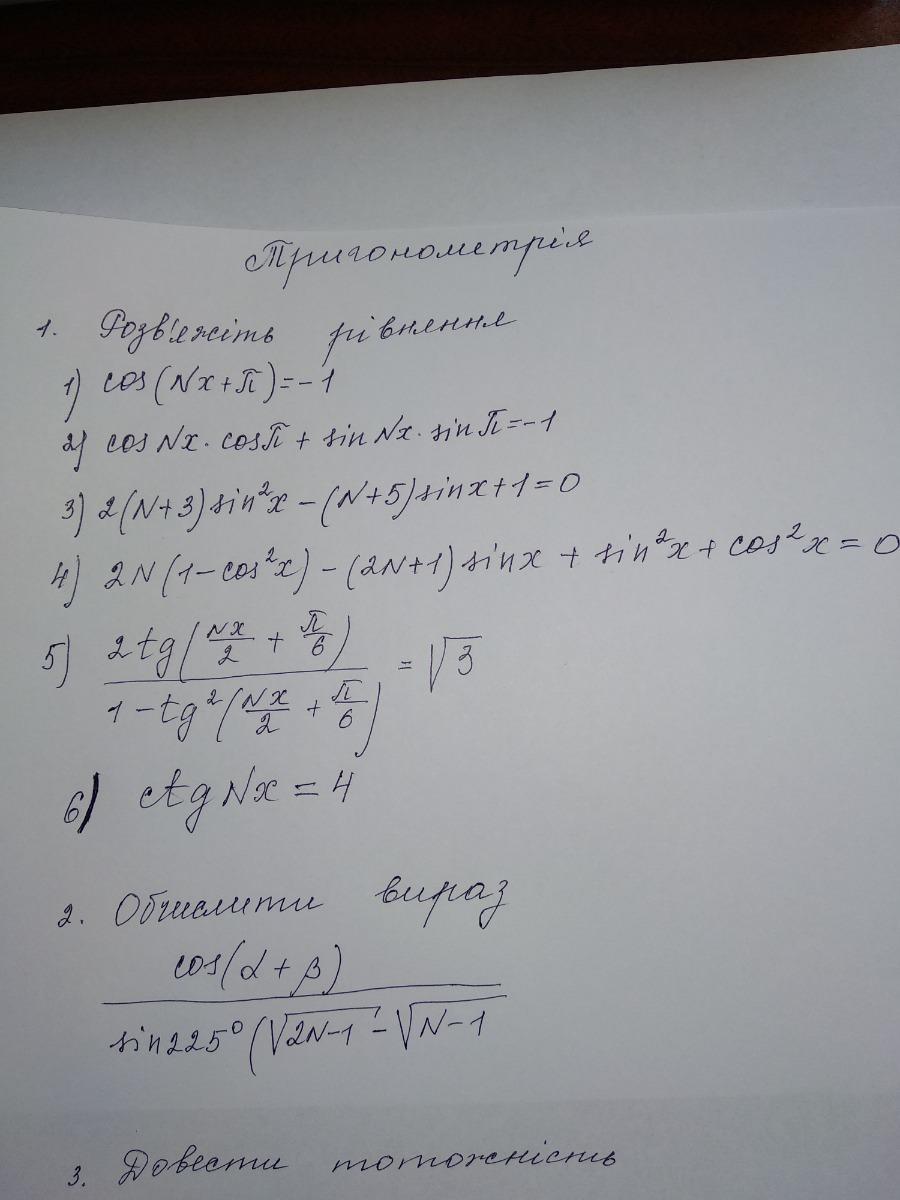 Тригонометрія
1. Розв'яжіть рівняння
1) cos(Nx+π)=-1
2) cosNx·cosπ + sinNx·sinπ=-1
3) 2(N+3)sin²x - (N+5)sinx+1=0
4) 2N(1-cos²x) - (2N+1)sinx + sin²x + cos²x = 0
5) 2tg(Nx/2 + π/6) / 1-tg²(Nx/2 + π/6) = √3
6) ctg Nx = 4
2. Обчислити вираз
cos(α+β)
sin225°(√2N-1 - √N-1
3. Довести тотожність